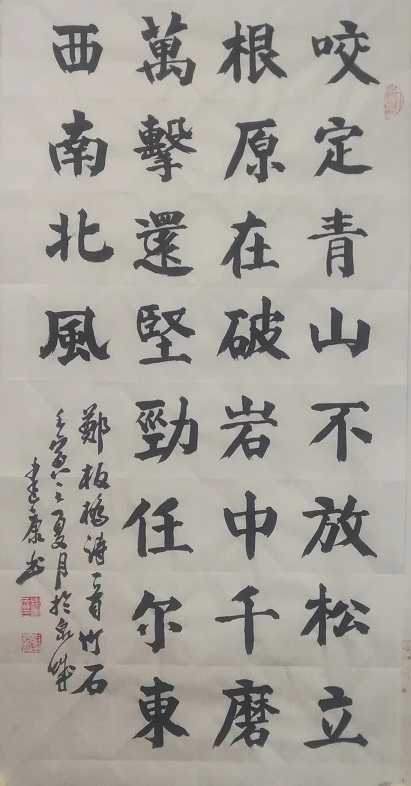 咬定青山不放松立
根原在破岩中千磨
萬擊還堅勁任尔東
西南北風
鄭板橋詩一首竹石
壬寅之夏月於泉城
建康书